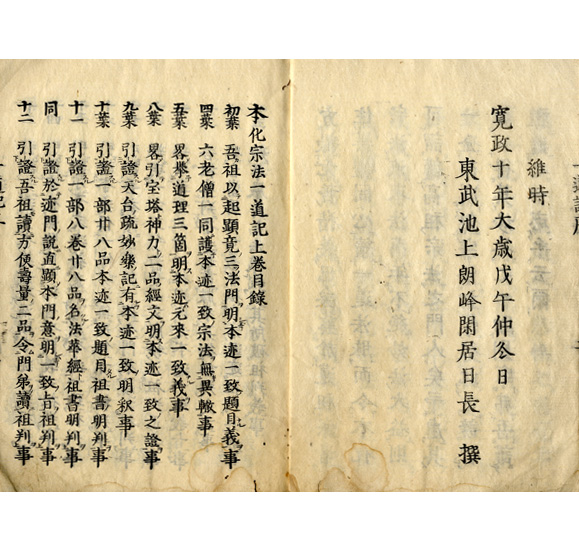 維時
寛政十年大歳戊午仲冬日
東武池上朗峰閑居日長 撰
本化宗法一道記上巻目錄
初葉 吾祖以起顕竟三法門明本迹一致題目義事
四葉 六老僧一同護本迹一致宗法無異轍事
五葉 畧挙道理三箇明本迹元來一致義事
八葉 畧引宝塔神力二品經文明本迹一致之證事
九葉 引證天台疏妙樂記有本迹一致明釈事
十葉 引證一部廿八品本迹一致題目祖書明判事
十一 引證一部八巻廿八品名法華經祖書明判事
同 引證於迹門説直顕本門意明一致旨祖判事
十二 引證吾祖讀方便壽量二品令門弟讀祖判事